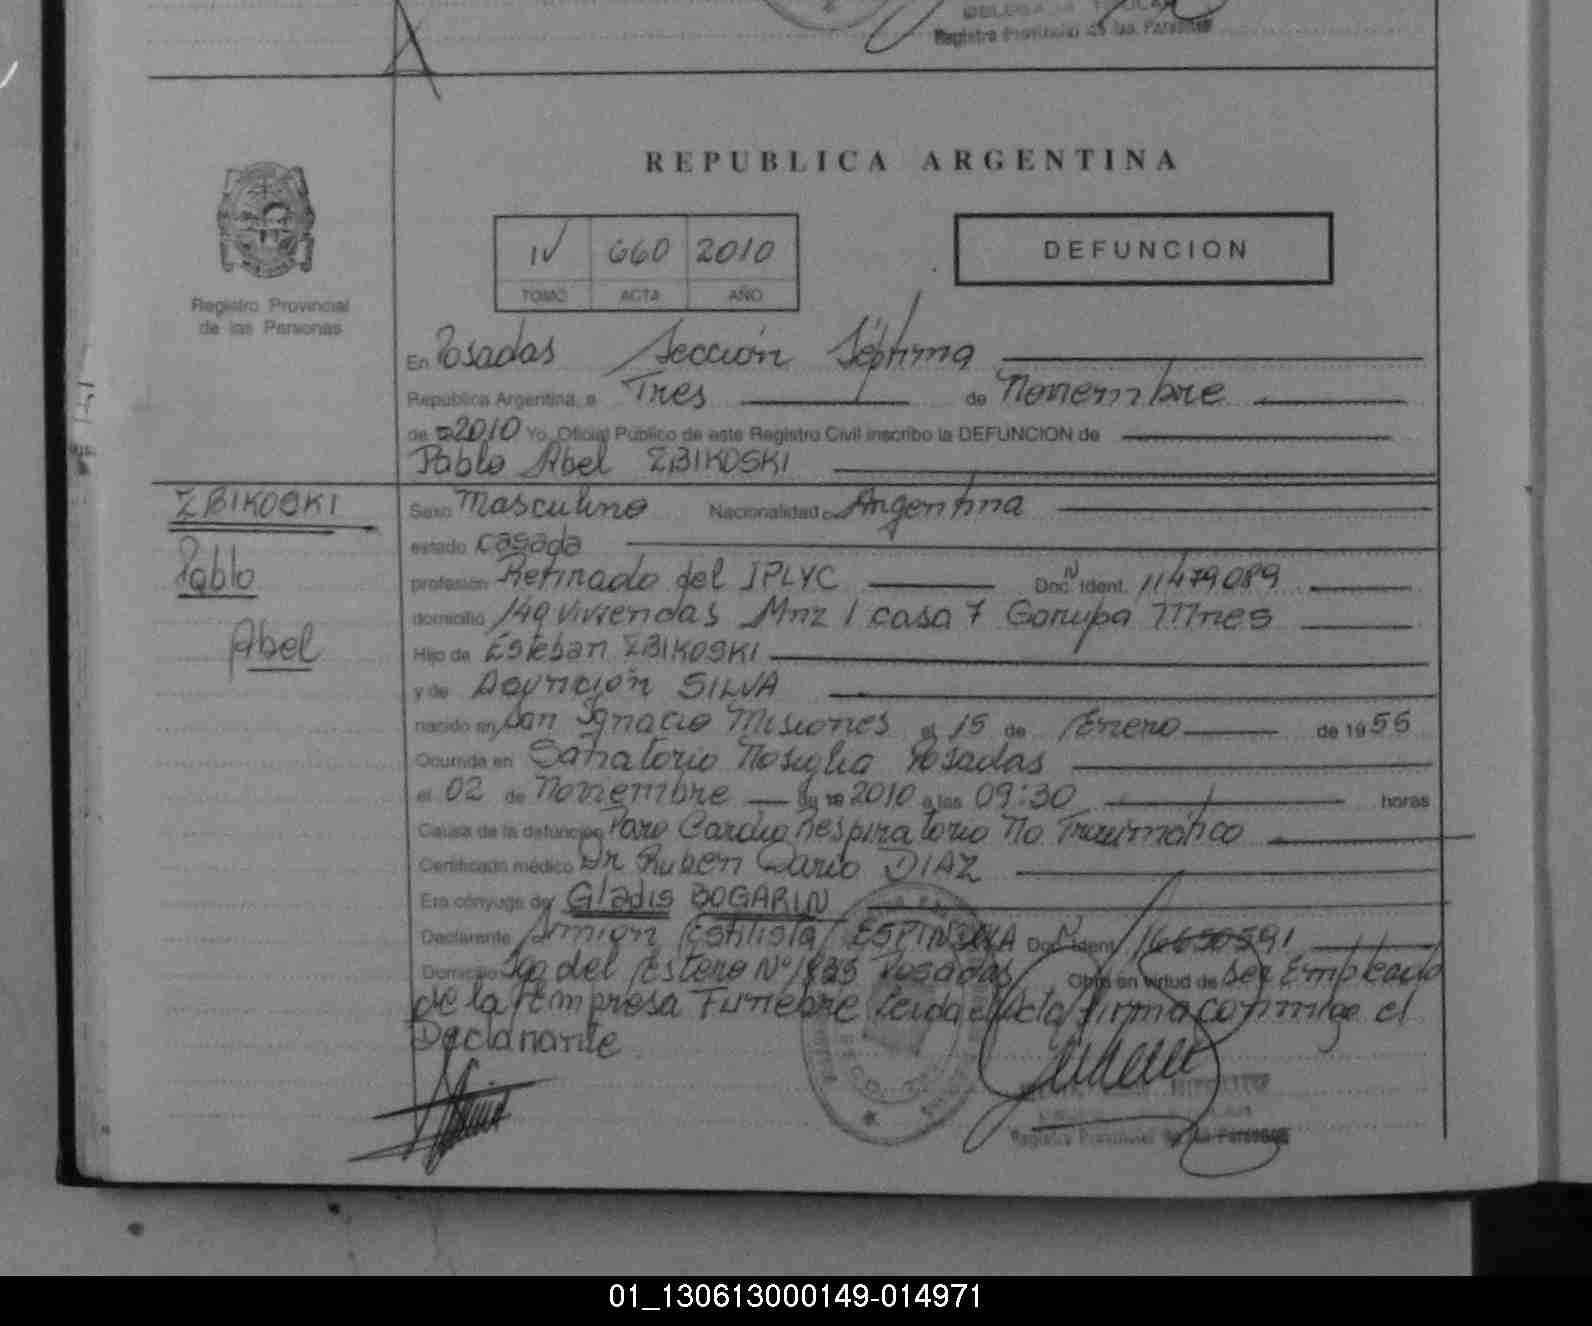 Registro Provincial de las Personas
REPUBLICA ARGENTINA
IV 660 2010
TOMO ACTA AÑO
DEFUNCION
Registro Provincial
de las Personas
En Posadas Sección Séptima
Republica Argentina, a Tres de Noviembre
de 2010 Yo, Oficial Público de este Registro Civil inscribo la DEFUNCION de
Pablo Abel ZBIKOSKI
ZBIKOSKI
Pablo
Abel
Sexo Masculino Nacionalidad Argentina
estado casada
profesión Retirado del IPLYC Doc. Ident. N 11479089
domicilio 149 viviendas Mnz 1 casa 7 Garupa Mnes
Hijo de Esteban ZBIKOSKI
y de Asunción SILVA
nacido en San Ignacio Misiones el 15 de Enero de 1955
Ocurrida en Sanatorio Nosiglia Posadas
el 02 de Noviembre de 2010 a las 09:30 horas
Causa de la defunción Paro Cardio Respiratorio No Traumático
Certificado médico Dr Ruben Dario DIAZ
Era cónyuge de Gladis BOGARIN
Declarante Estilista ESPINDOLA Doc. Ident. 16650591
Domicilio Sgo del Estero Nº Posadas Obra en virtud de ser Empleado
de la Empresa Funebre Leida el Acta firma conmigo el
Declarante
Registro Provincial de las Personas
01_130613000149-014971